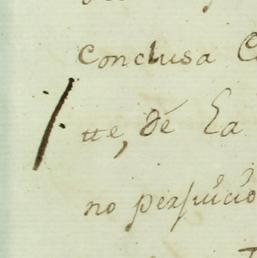 conclusa C
tte, dé La
no perjuició